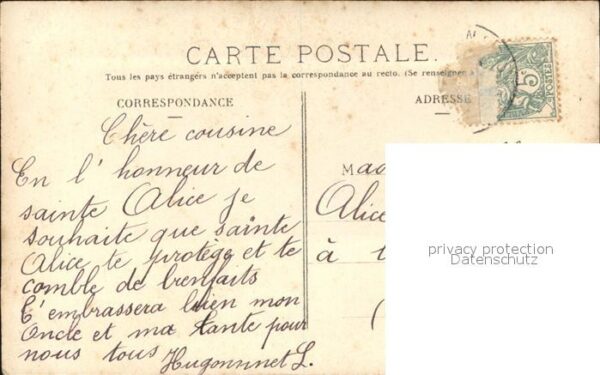 CARTE POSTALE.
Tous les pays étrangers n'acceptent pas la correspondance au recto. (Se renseigner à
CORRESPONDANCE
ADRESSE
Chère cousine
En l'honneur de
sainte Alice je
souhaite que sainte
Alice te protège et te
comble de bienfaits
T'embrassera bien mon
Oncle et ma tante pour
nous tous Hugonninet L.
Mad
Alice
à
5c
POSTES
privacy protection
Datenschutz